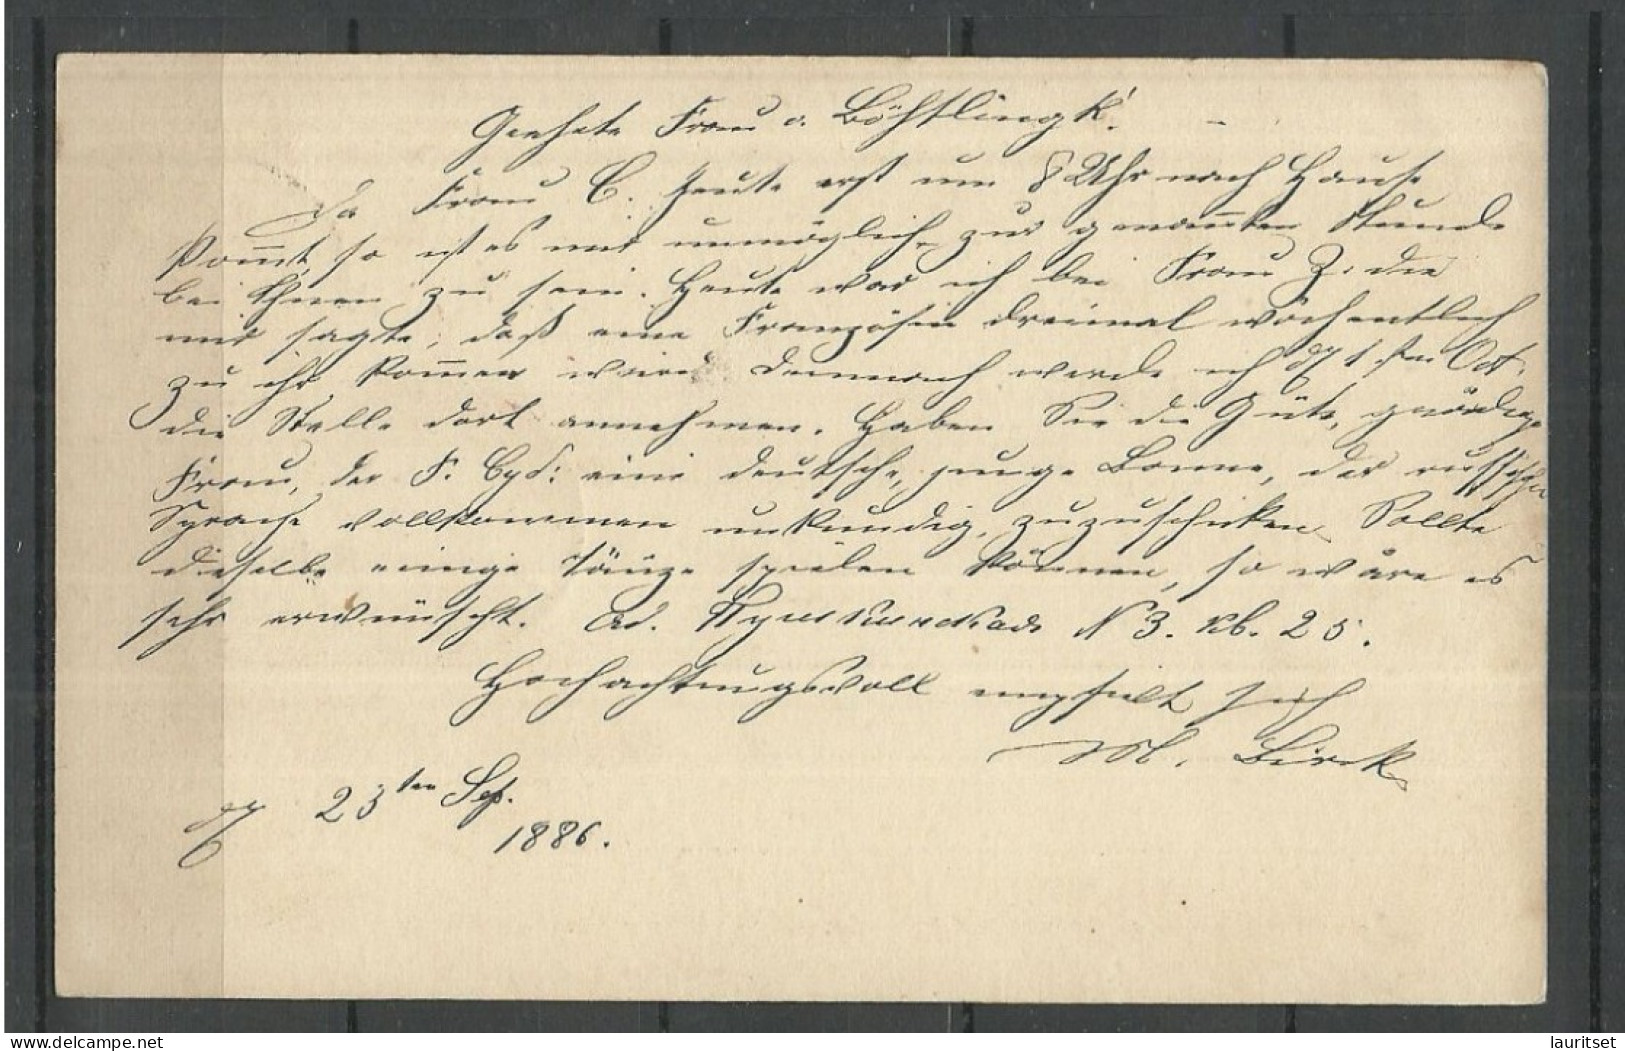 Geehrte Frau v. Böhtlingk!
Da Frau C. heute erst um 8 Uhr nach Hause
kom̅t, so ist es mir unmöglich, zur genan̅ten Stunde
bei Ihnen zu sein. Heute war ich bei Frau Z. die
mir sagte, daß eine Französin dreimal wöchentlich
zu ihr kom̅en wird. Demnach werde ich d. 1sten Oct.
die Stelle dort annehmen. Haben Sie die Güte, gnädige
Frau, der F. eine deutsche, junge Bonne, der russischen
Sprache vollkommen unkundig, zuzuschicken. Sollte
dieselbe einige Tänze spielen können, so wäre es
sehr erwünscht. Ad. Пушкинская N 3. кв. 25.
Hochachtungsvoll empfielt sich
M. Birck
d. 23ten Sep.
1886.
lauritset
www.delcampe.net